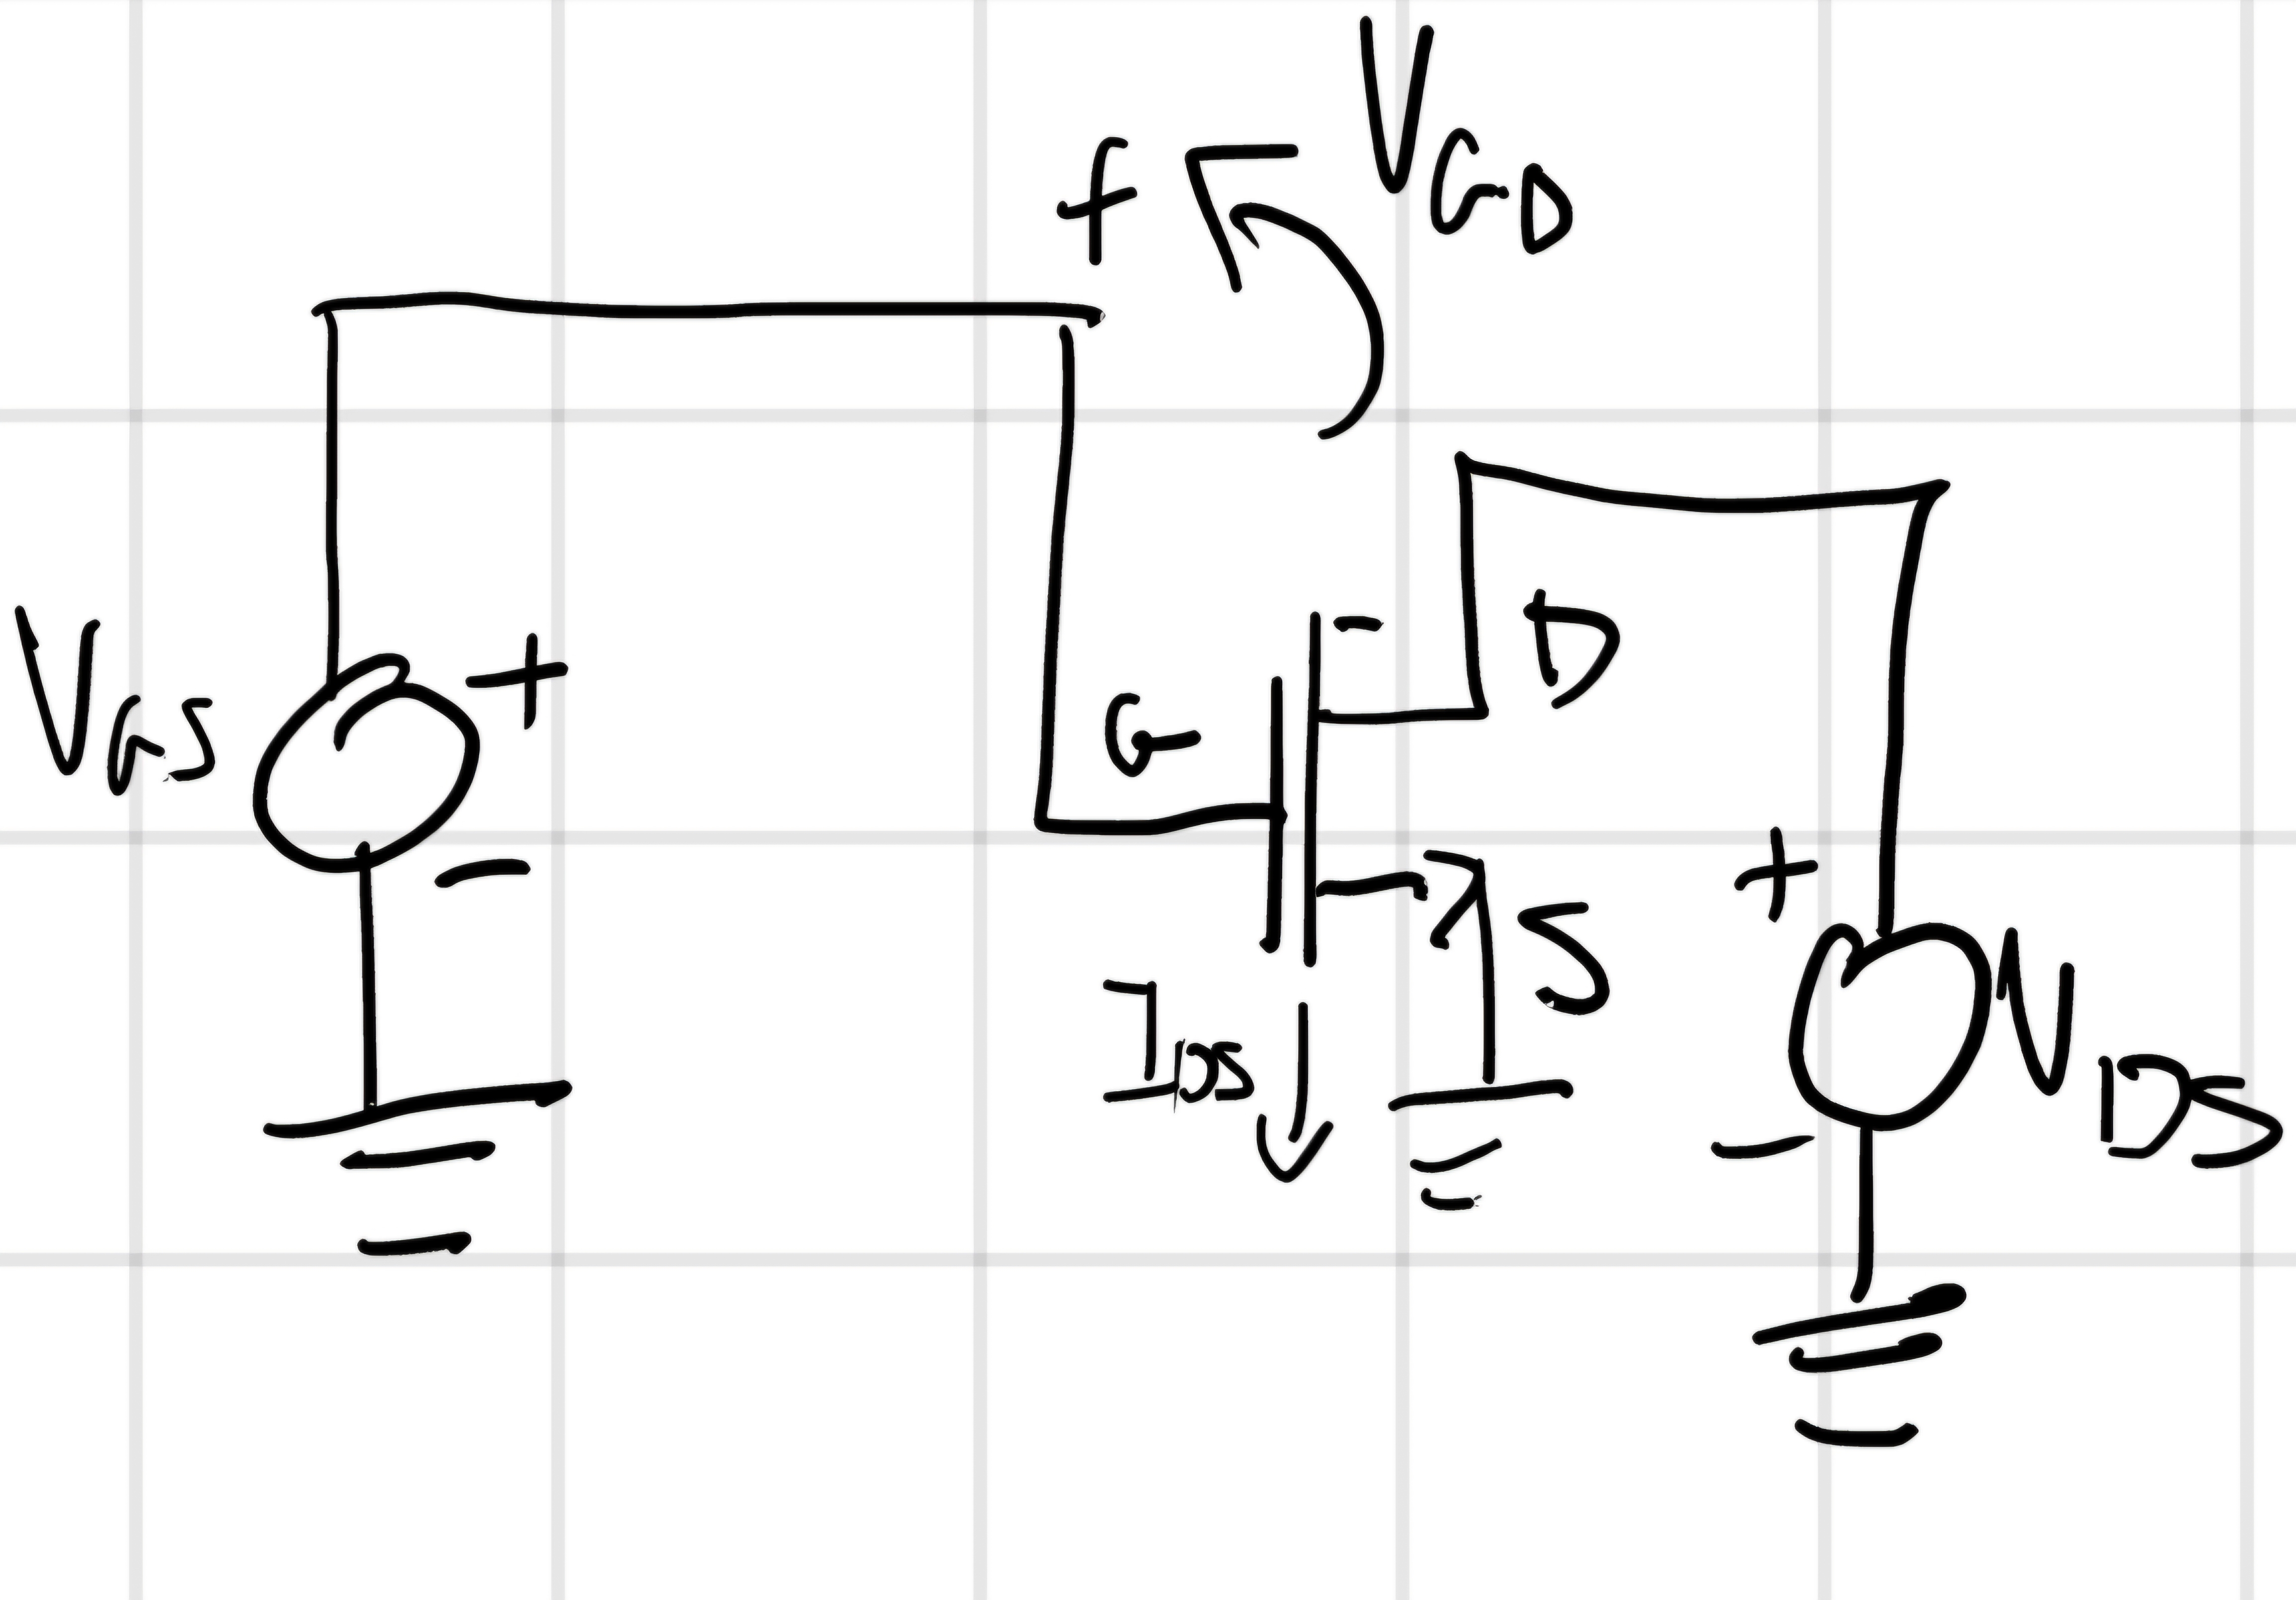 V_GD
+
V_GS
+
-
G
-
D
S
I_DS
+
-
V_DS